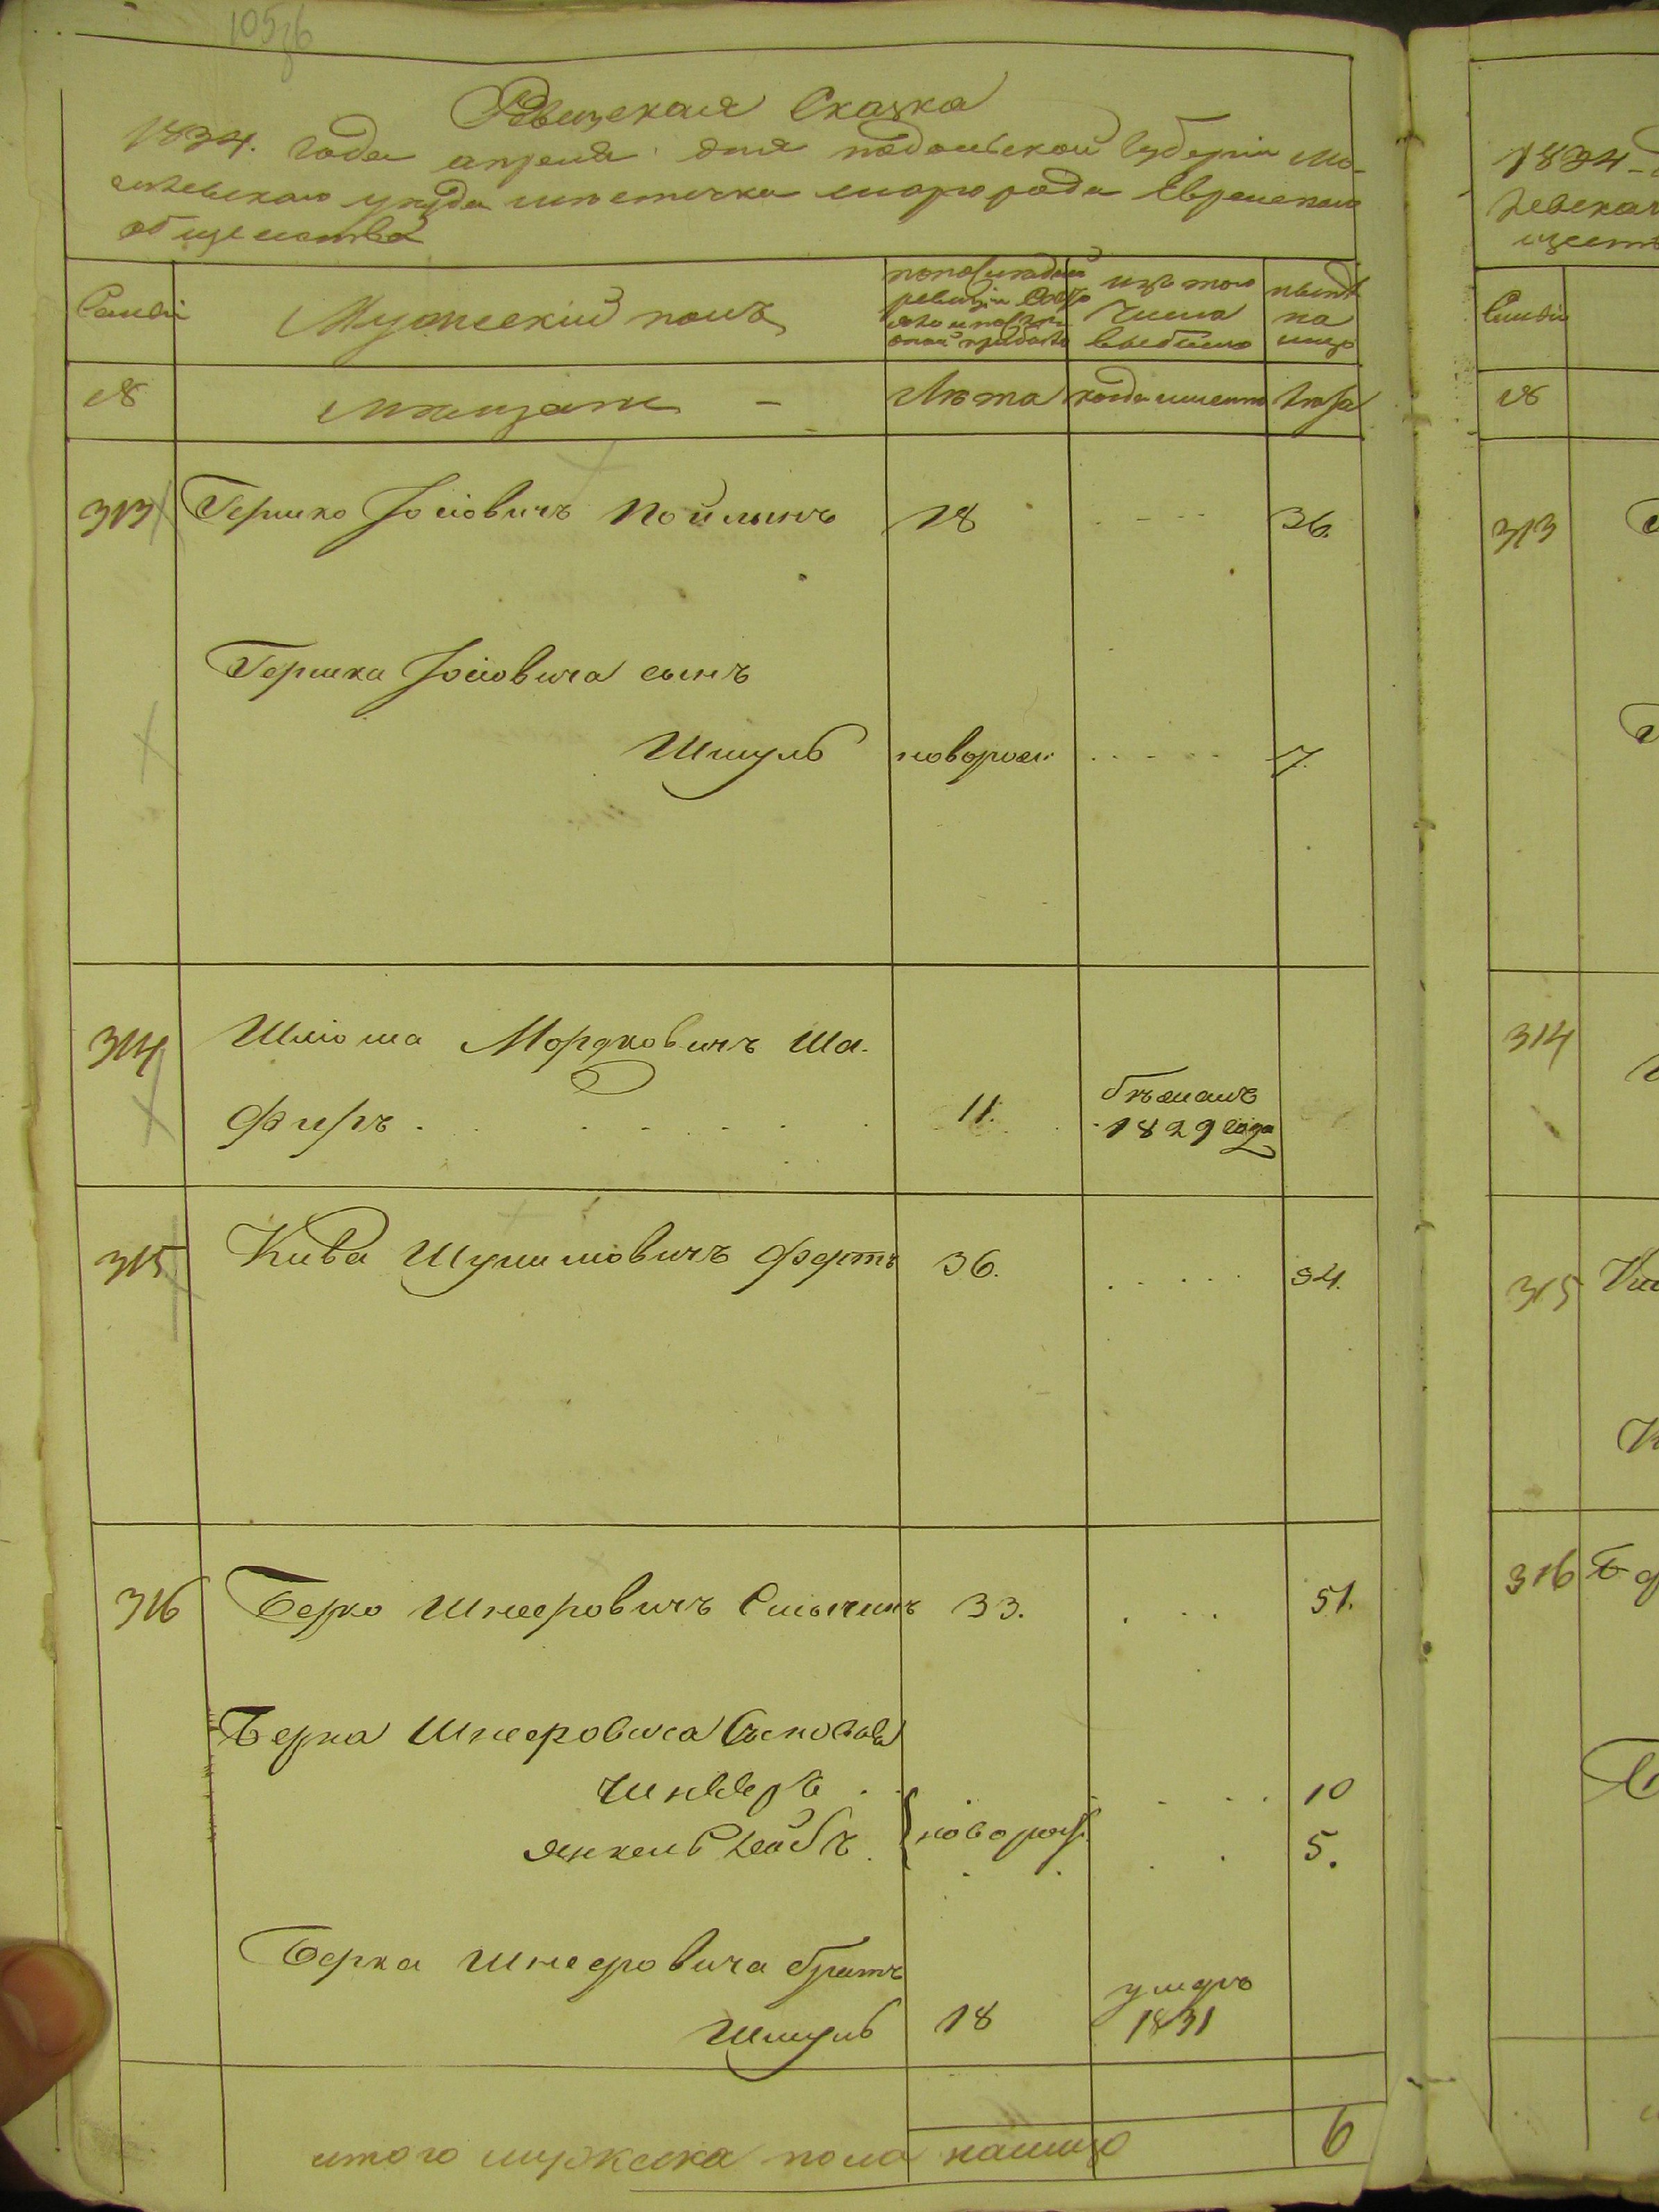 10576
Ревизская Сказка
1834. года апреля дня подольской Губернии Мо-
гилевского уезда местечка Шаргорода Еврейскаго
общества
Семьи
Мужеский полъ
изъ того
числа
выбыло
ныне
на
лицо
№
мещане -
Лета
когда именно
Лета
313
Гершко Іосіовичъ Пойлинъ
18
36.
Гершка Іосіовича сынъ
Шмуль
новорож:
7.
314
Шліома Мордковичъ Ша-
фиръ
11.
бежалъ
1829 года
315
Кива Шулимовичъ Фертъ
36.
54.
316
Берко Шнееровичъ
33.
51.
Берка Шнееровича Сыновья
Шнееръ
10
Янкель Лейбъ
новорож.
5.
Берка Шнееровича братъ
Шмуль
18
умеръ
1831
итого мужеска пола налицо
6
1834-
Семьи
№
313
314
315
316